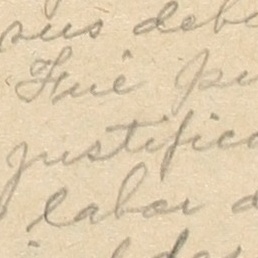 sus debe
Fué pu
justifica
labor d